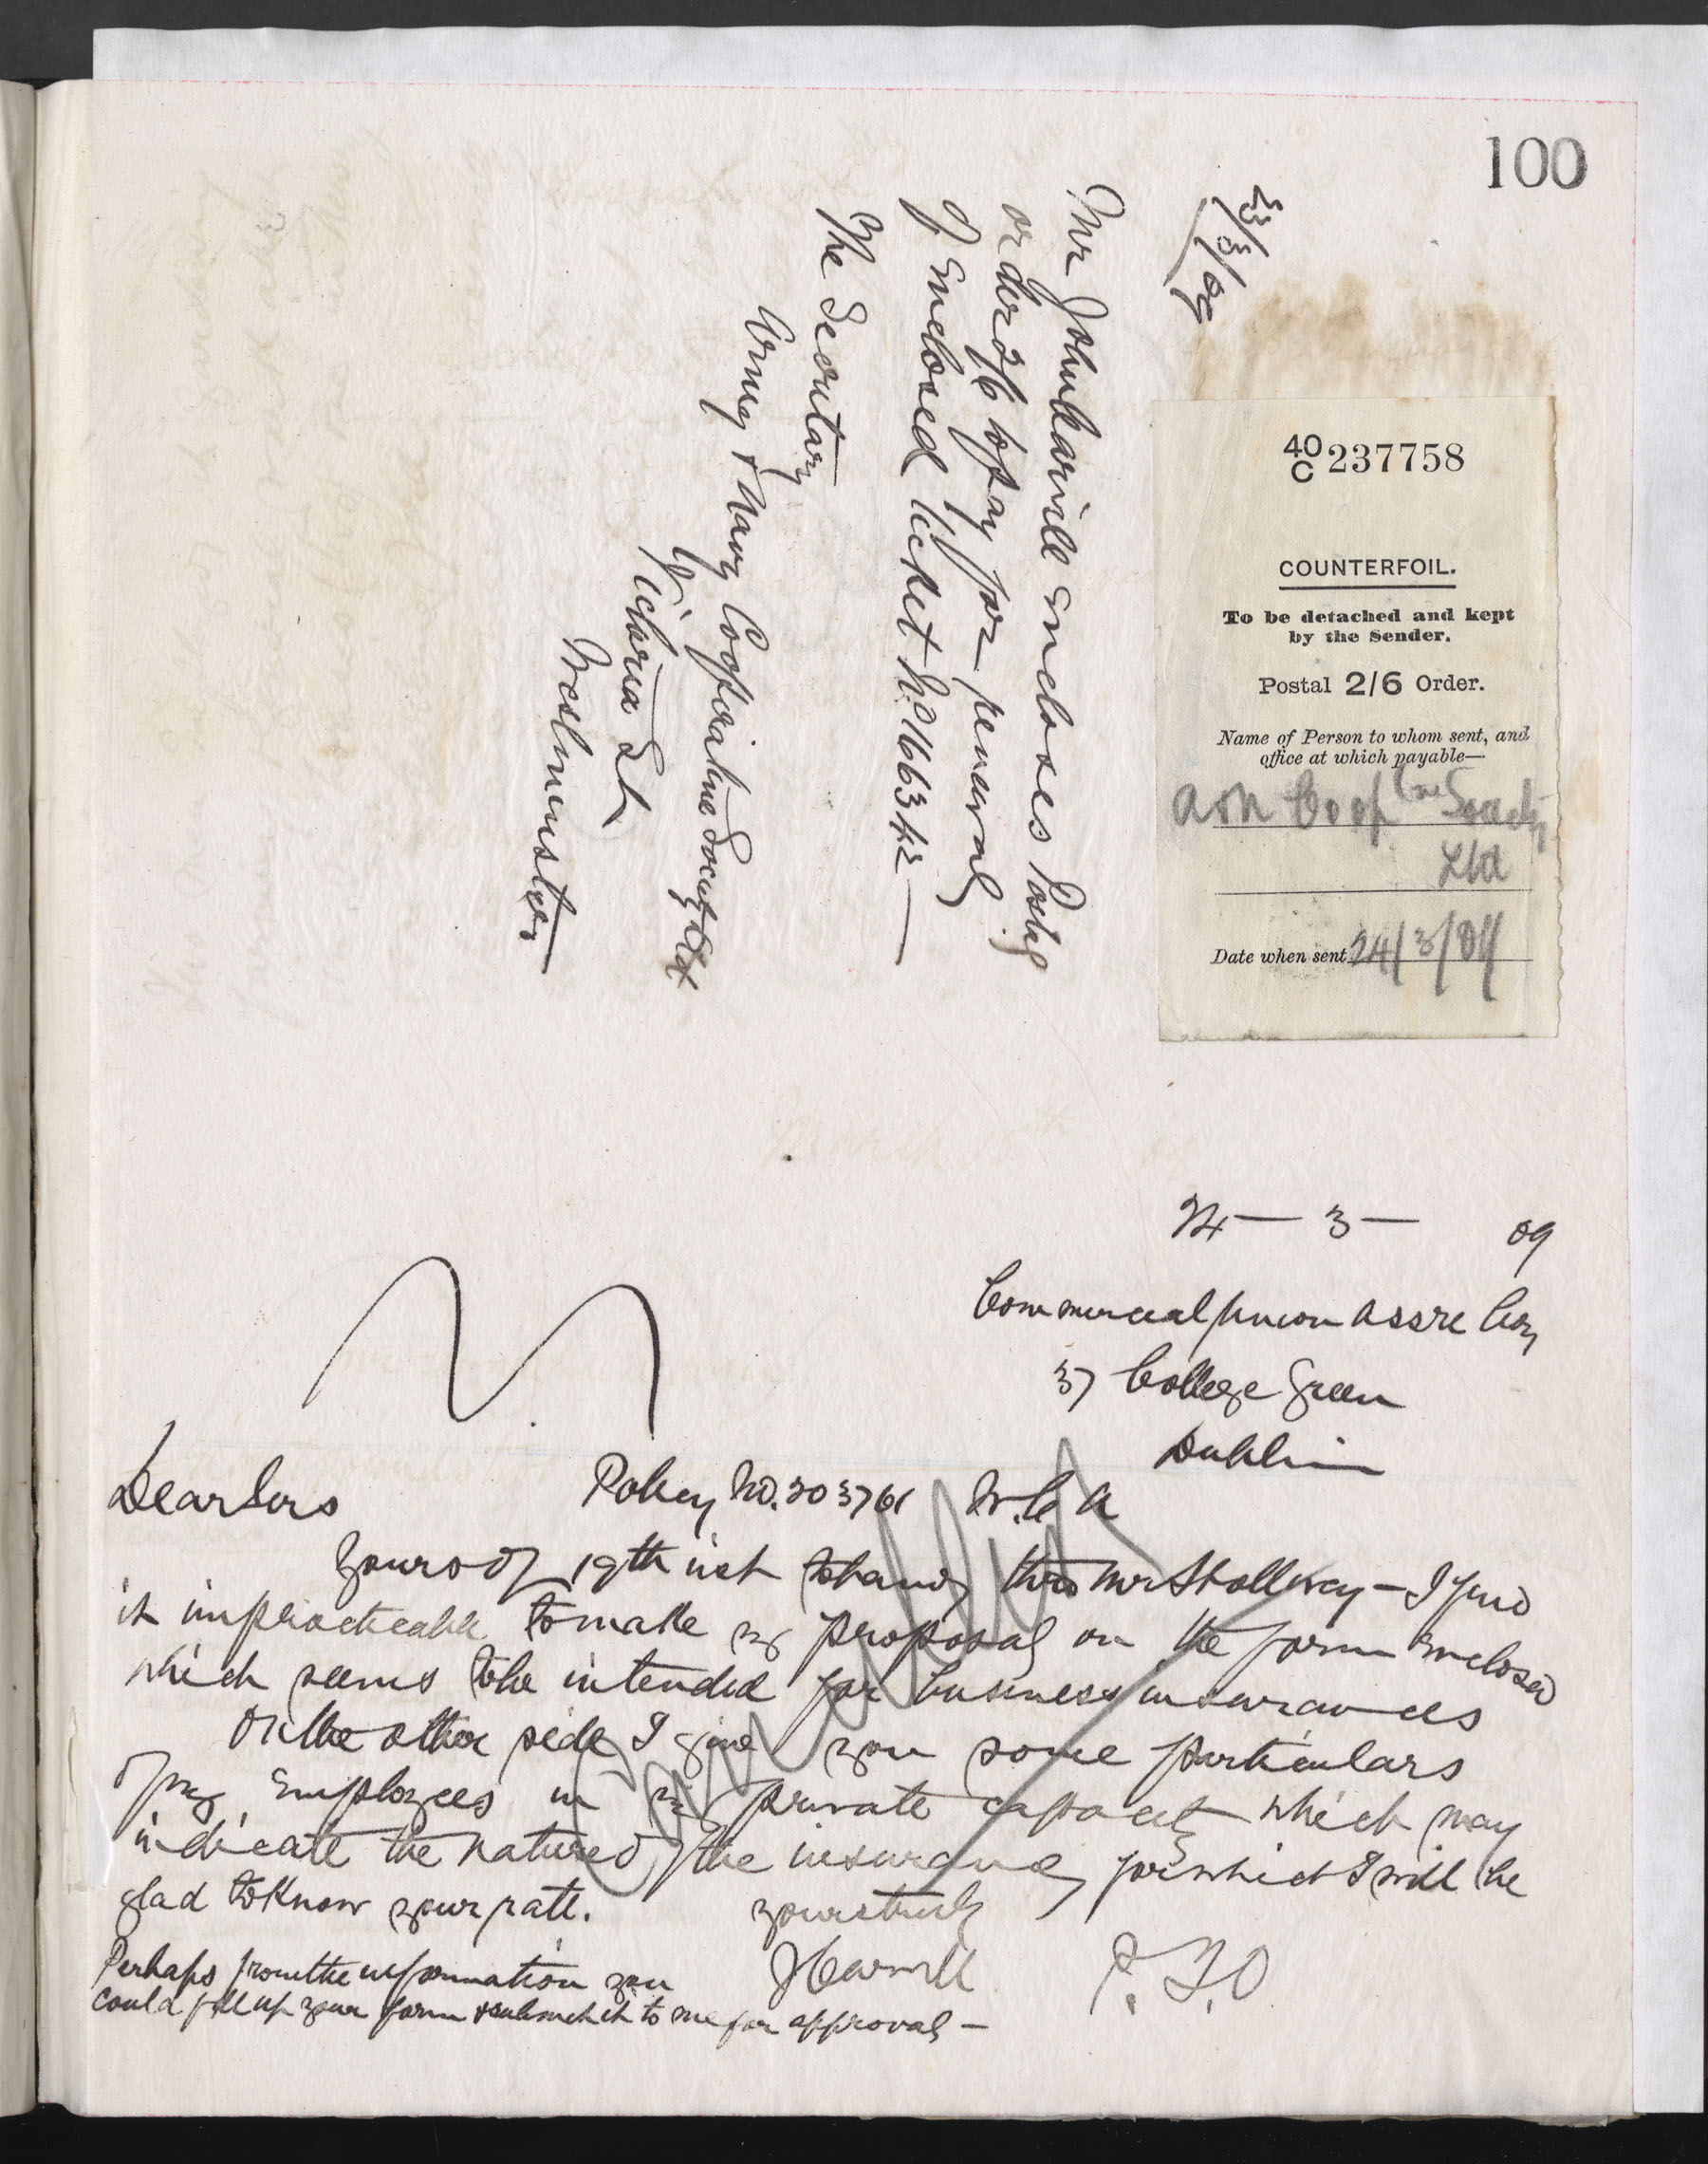 100
23/3/09
Mr John Carvill encloses Postal
order 2/6 to pay for renewal
of Enclosed ticket No 166342 —
The Secretary
Army & Navy Cooperative Society Ltd
Victoria St
Westminster
40
C 237758
COUNTERFOIL.
To be detached and kept
by the Sender.
Postal 2/6 Order.
Name of Person to whom sent, and
office at which payable—
A & N Coop tve Society
Ltd
Date when sent 24/3/09
24 — 3 — 09
Commercial Union Assce Coy
37 College Green
Dublin
Dear Sirs Policy No. 203761 W.C.A
Yours of 19th inst to hand thro Mr Shollwey — I find
it impracticable to make my proposal on the form enclosed
which seems to be intended for business insurances
On the other side I give you some particulars
of my Employees in my private capacity which may
indicate the nature of the insurance for which I will be
glad to know your rate. yours truly
JCarvill P.T.O
Perhaps from the information you
could fill up your form & submit it to me for approval —